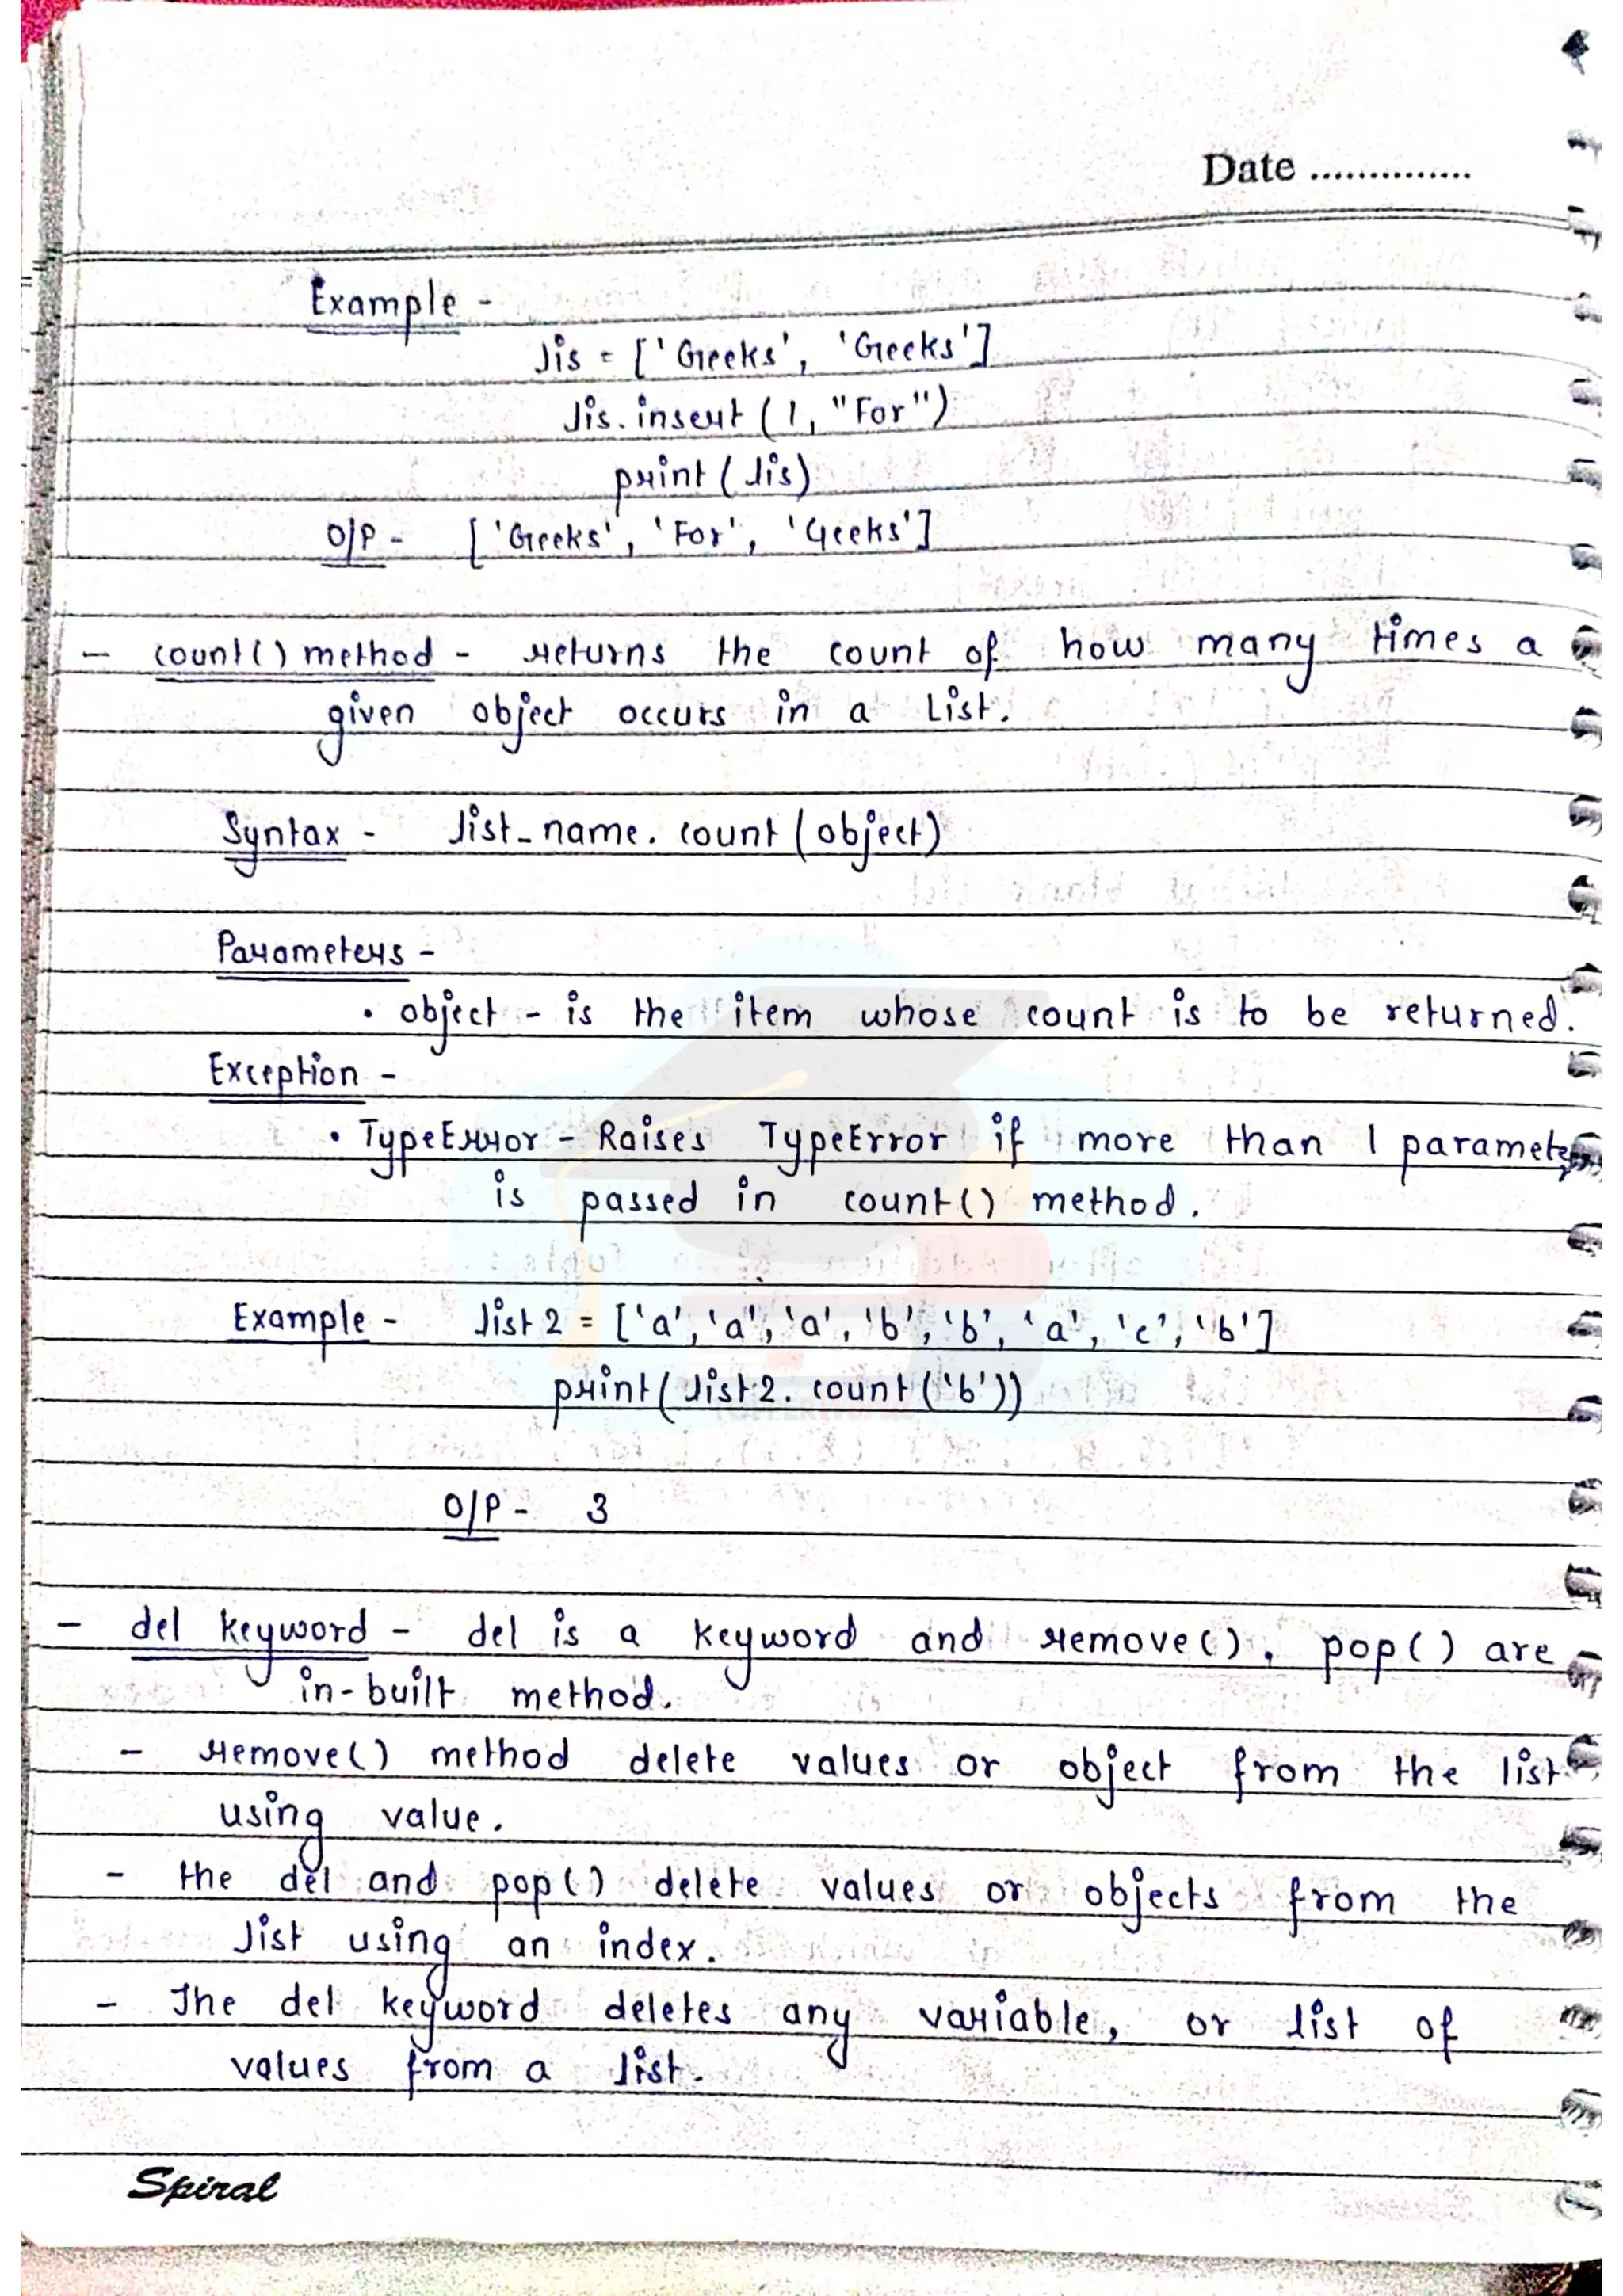 Date ..............
Example -
lis = ['Geeks', 'Geeks']
lis.insert(1, "For")
print(lis)
O/P - ['Geeks', 'For', 'Geeks']
- count() method - returns the count of how many times a
given object occurs in a List.
Syntax - list_name.count(object)
Parameters -
• object - is the item whose count is to be returned.
Exception -
• TypeError - Raises TypeError if more than 1 parameter
is passed in count() method.
Example - list2 = ['a', 'a', 'a', 'b', 'b', 'a', 'c', 'b']
print(list2.count('b'))
O/P - 3
- del keyword - del is a keyword and remove(), pop() are
in-built method.
- remove() method delete values or object from the list
using value.
- the del and pop() delete values or objects from the
list using an index.
- The del keyword deletes any variable, or list of
values from a list.
Spiral